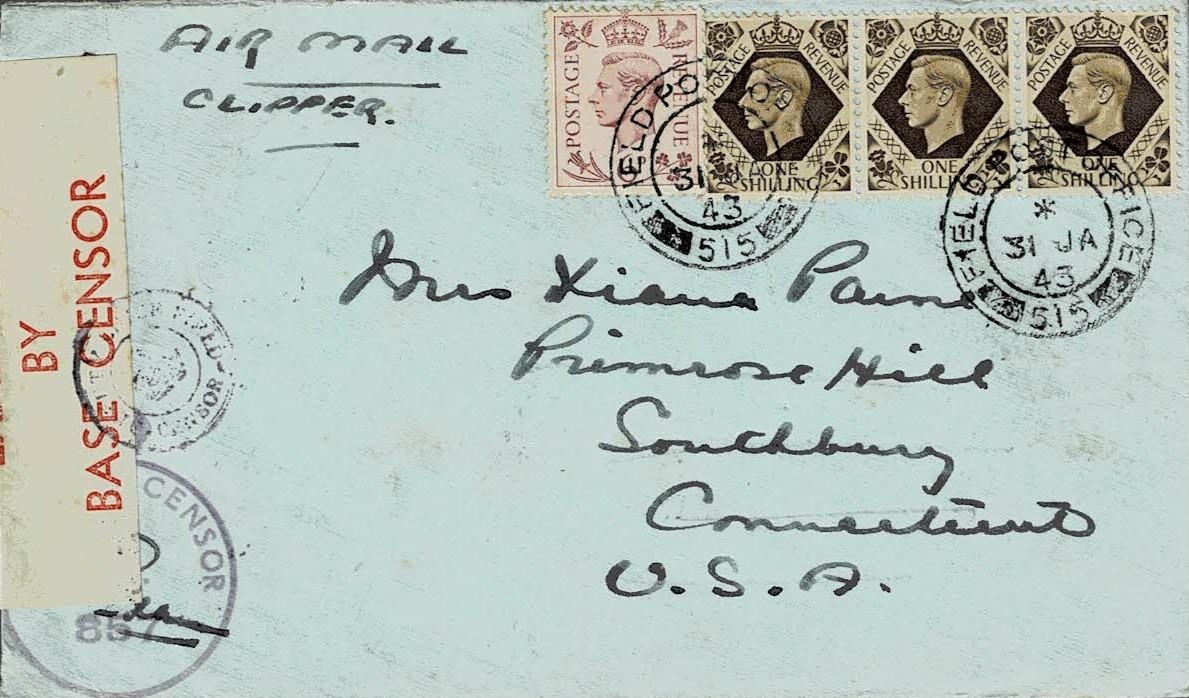 AIR MAIL
CLIPPER.
POSTAGE REVENUE
POSTAGE REVENUE
ONE
SHILLING
POSTAGE REVENUE
ONE
SHILLI
POSTAGE REVENUE
ONE
SHILLING
FIELD PO
31
43
515
FIELD POST OFFICE
*
31 JA
43
515
BY
BASE CENSOR
CENSOR
CENSOR
857
Mrs Diana Paine
Primrose Hill
Southbury
Connecticut
U.S.A.